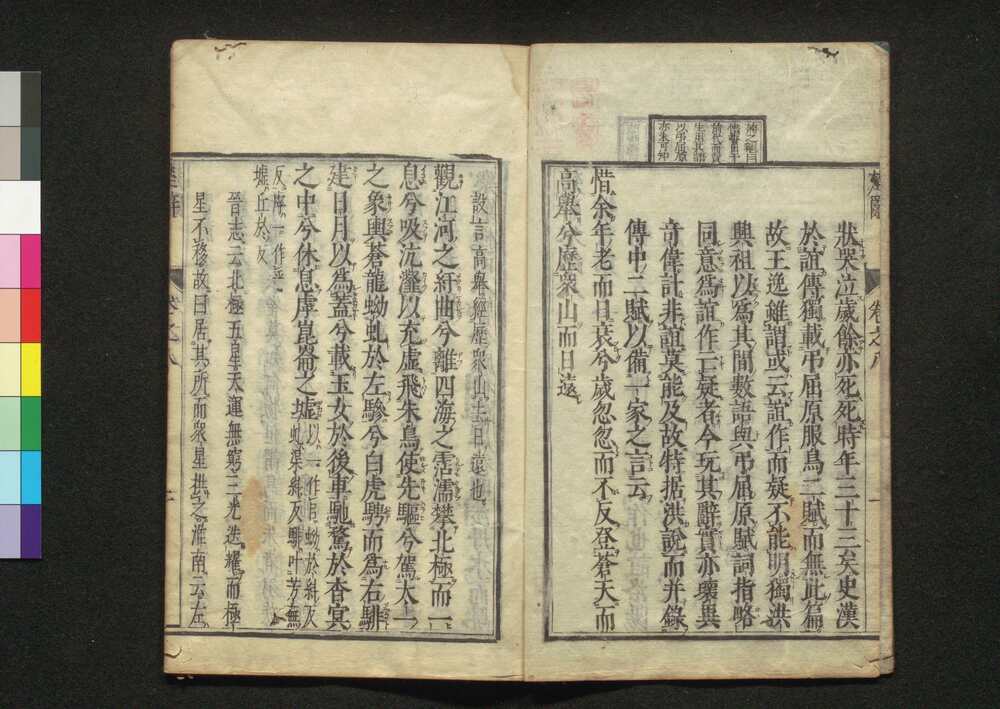 狀哭泣歲餘亦死死時年三十三矣史漢
於誼傳獨載弔屈原服鳥二賦而無此篇
故王逸雖謂或云誼作而疑不能明獨洪
興祖以爲其間數語與弔屈原賦詞指略
同意爲誼作亡疑者今玩其辭實亦瓌異
奇偉計非誼莫能及故特据洪說而并錄
傳中二賦以備一家之言云
惜余年老而日衰兮歲忽忽而不反登蒼天而
高舉兮歷衆山而日遠
卷之八
設言高舉經歷衆山去日遠也
觀江河之紆曲兮離四海之霑濡攀北極而一
息兮吸沆瀣以充虛飛朱鳥使先驅兮駕太一
之象輿蒼龍蚴虬於左驂兮白虎騁而爲右騑
建日月以爲蓋兮載玉女於後車馳騖於杳冥
之中兮休息虖崑崙之墟
以一作㠯蚴於糾反
虬渠糾反騑叶芳無
反虖一作乎
墟丘於反
晉志云北極五星天運無窮三光迭耀而極
星不移故曰居其所而衆星拱之淮南云左
卷之八